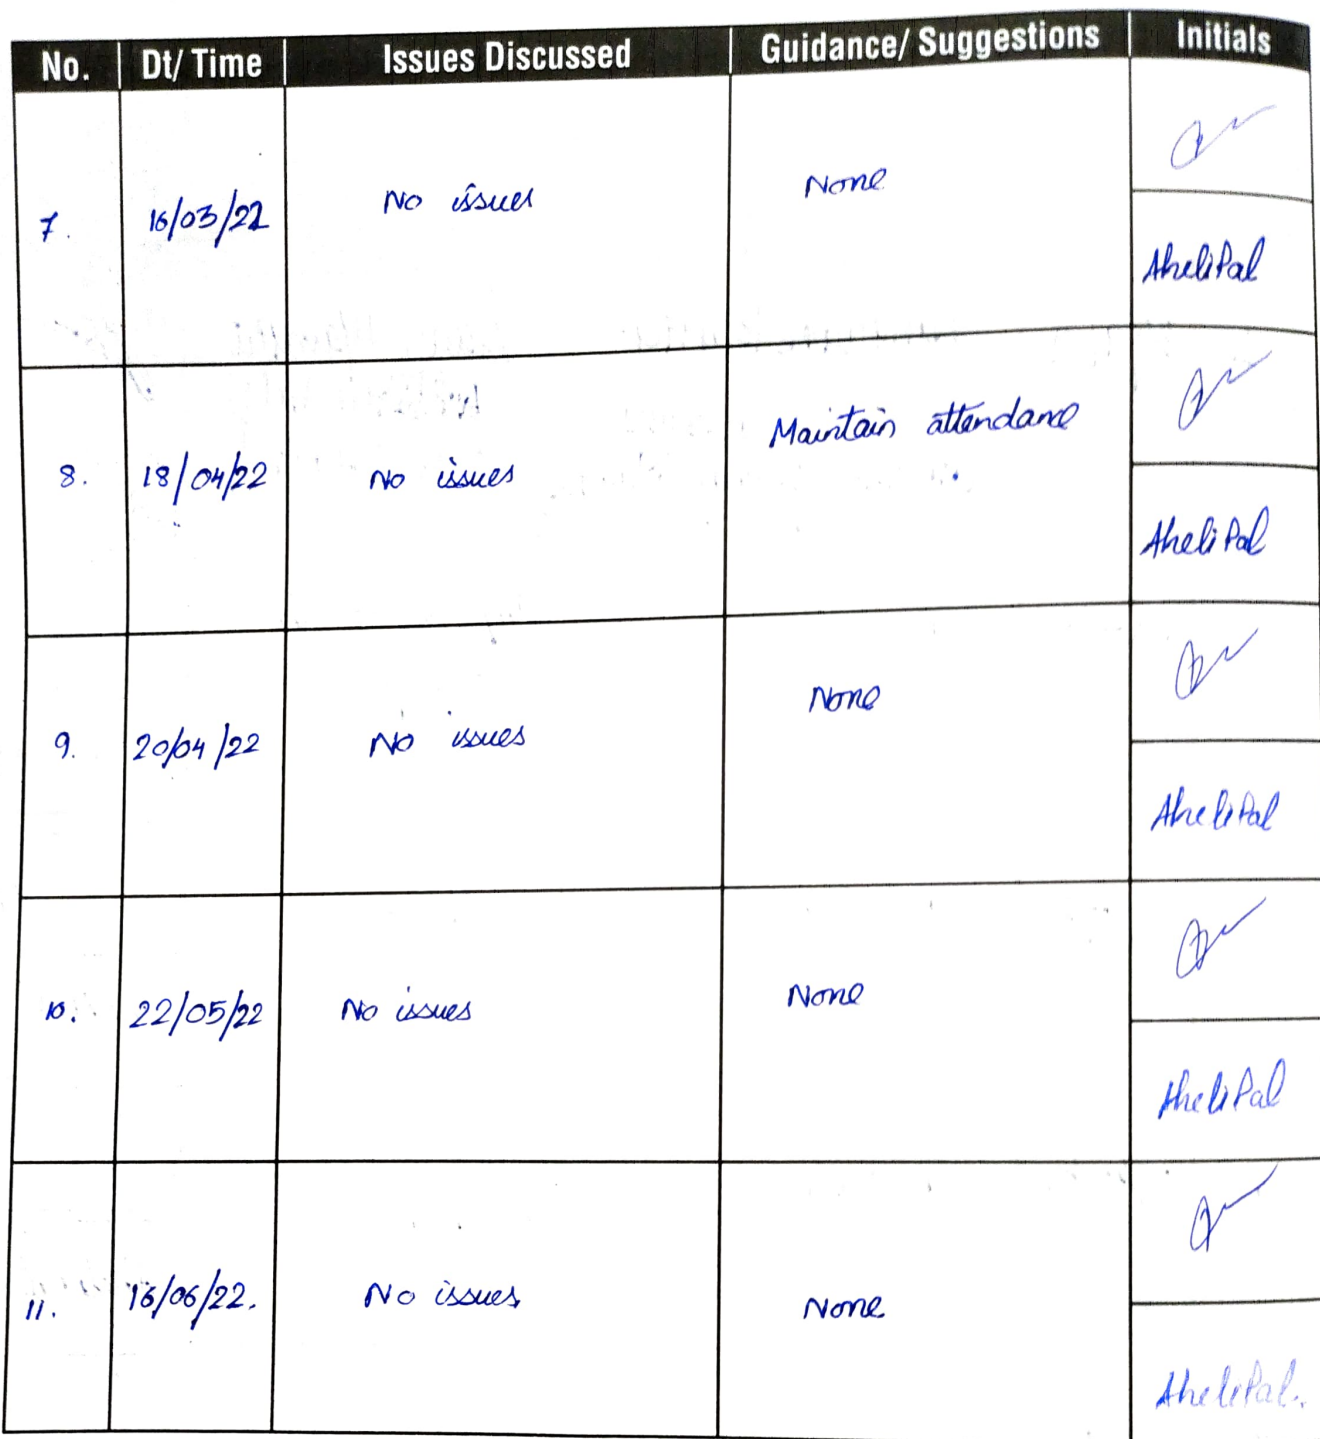 No. Dt/ Time Issues Discussed Guidance/ Suggestions Initials
7. 16/03/22 No issues None
Aheli Pal
8. 18/04/22 No issues Maintain attendance
Aheli Pal
9. 20/04/22 No issues None
Aheli Pal
10. 22/05/22 No issues None
Aheli Pal
11. 16/06/22. No issues None
Aheli Pal.